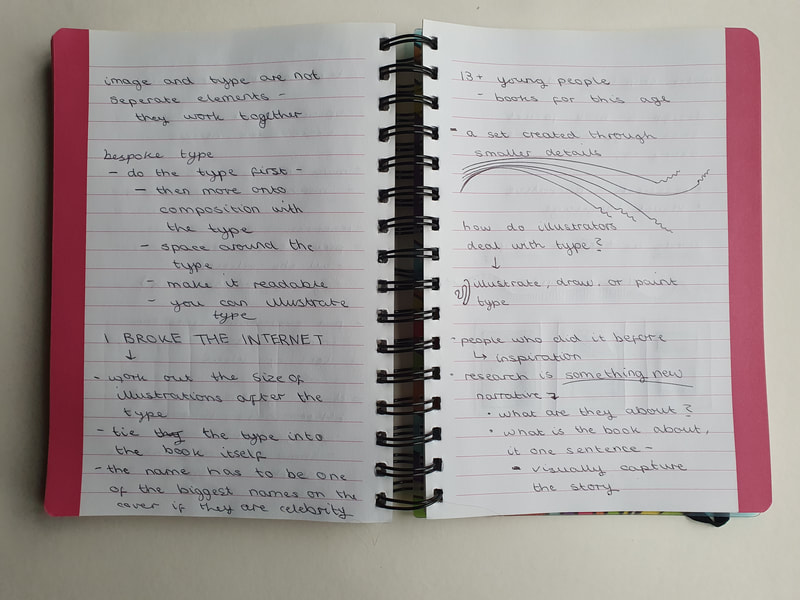 image and type are not
seperate elements -
they work together
bespoke type
- do the type first -
- then move onto
composition with
the type
- space around the
type
- make it readable
- you can illustrate
type
I BROKE THE INTERNET
↓
- work out the size of
illustrations after the
type
- tie the type into
the book itself
- the name has to be one
of the biggest names on the
cover if they are celebrity
13+ young people
- books for this age
- a set created through
smaller details
how do illustrators
deal with type?
↓
illustrate, draw, or paint
type
- people who did it before
↳ inspiration
- research is something new
narrative
• what are they about?
• what is the book about,
it one sentence -
- visually capture
the story